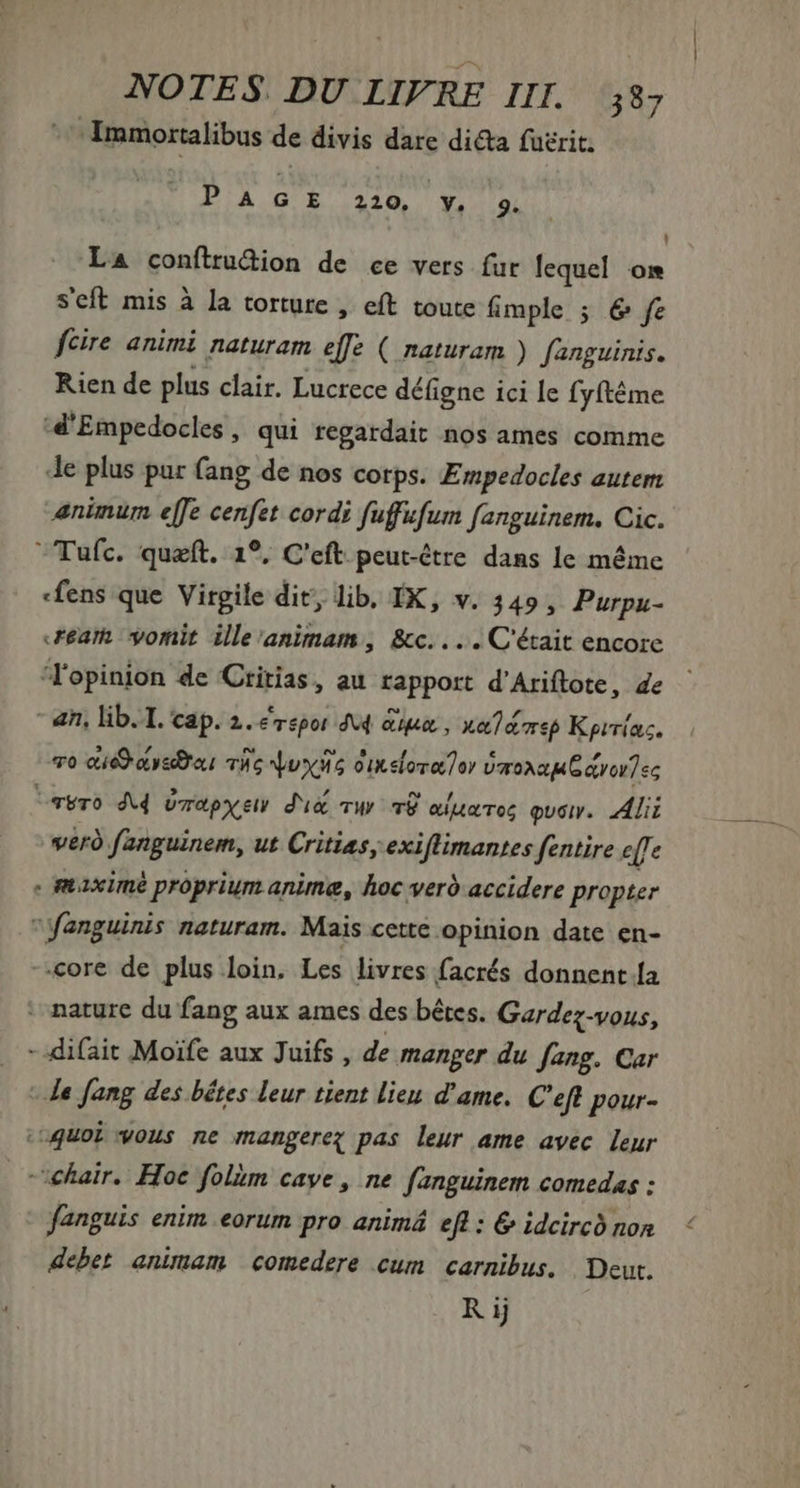 NOTES DU LIVRE III. 387
Immortalibus de divis dare dicta fuërit.
PAGE 220, V. 9.
La conſtruction de ce vers ſur lequel on
s'eſt mis à la torture, eſt toute ſimple ; & ſe
ſcire animi naturam eſſe ( naturam ) ſanguinis.
Rien de plus clair. Lucrece déſigne ici le ſyſtême
d'Empedocles, qui regardait nos ames comme
le plus pur ſang de nos corps. Empedocles autem
animum eſſe cenſet cordi ſuffuſum ſanguinem. Cic.
Tuſc. quæſt. 1º. C'eſt peut-être dans le même
ſens que Virgile dit, lib. IX, v. 349, Purpu-
ream vomit ille animam, &c.... C'était encore
l'opinion de Critias, au rapport d'Ariſtote, de
an, lib. I. cap. 2. ἕτεροι δὲ αἷμα, καθάπερ Κριτίας.
το αἰσθάνεσθαι τῆς ψυχῆς οἰκειότατον ὑπολαμβάνοντες
τȣτο δὲ ὑπαρχειν διὰ την τȣ̃ αἵματος φυσιν. Alii
verò ſanguinem, ut Critias, exiſtimantes ſentire eſſe
maximè proprium animæ, hoc verò accidere propter
ſanguinis naturam. Mais cette opinion date en-
core de plus loin. Les livres ſacrés donnent la
nature du ſang aux ames des bêtes. Gardez-vous,
diſait Moïſe aux Juifs, de manger du ſang. Car
le ſang des bêtes leur tient lieu d'ame. C'eſt pour-
quoi vous ne mangerez pas leur ame avec leur
chair. Hoc ſolùm cave, ne ſanguinem comedas :
ſanguis enim eorum pro animâ eſt : & idcircò non
debet animam comedere cum carnibus. Deut.
R ij